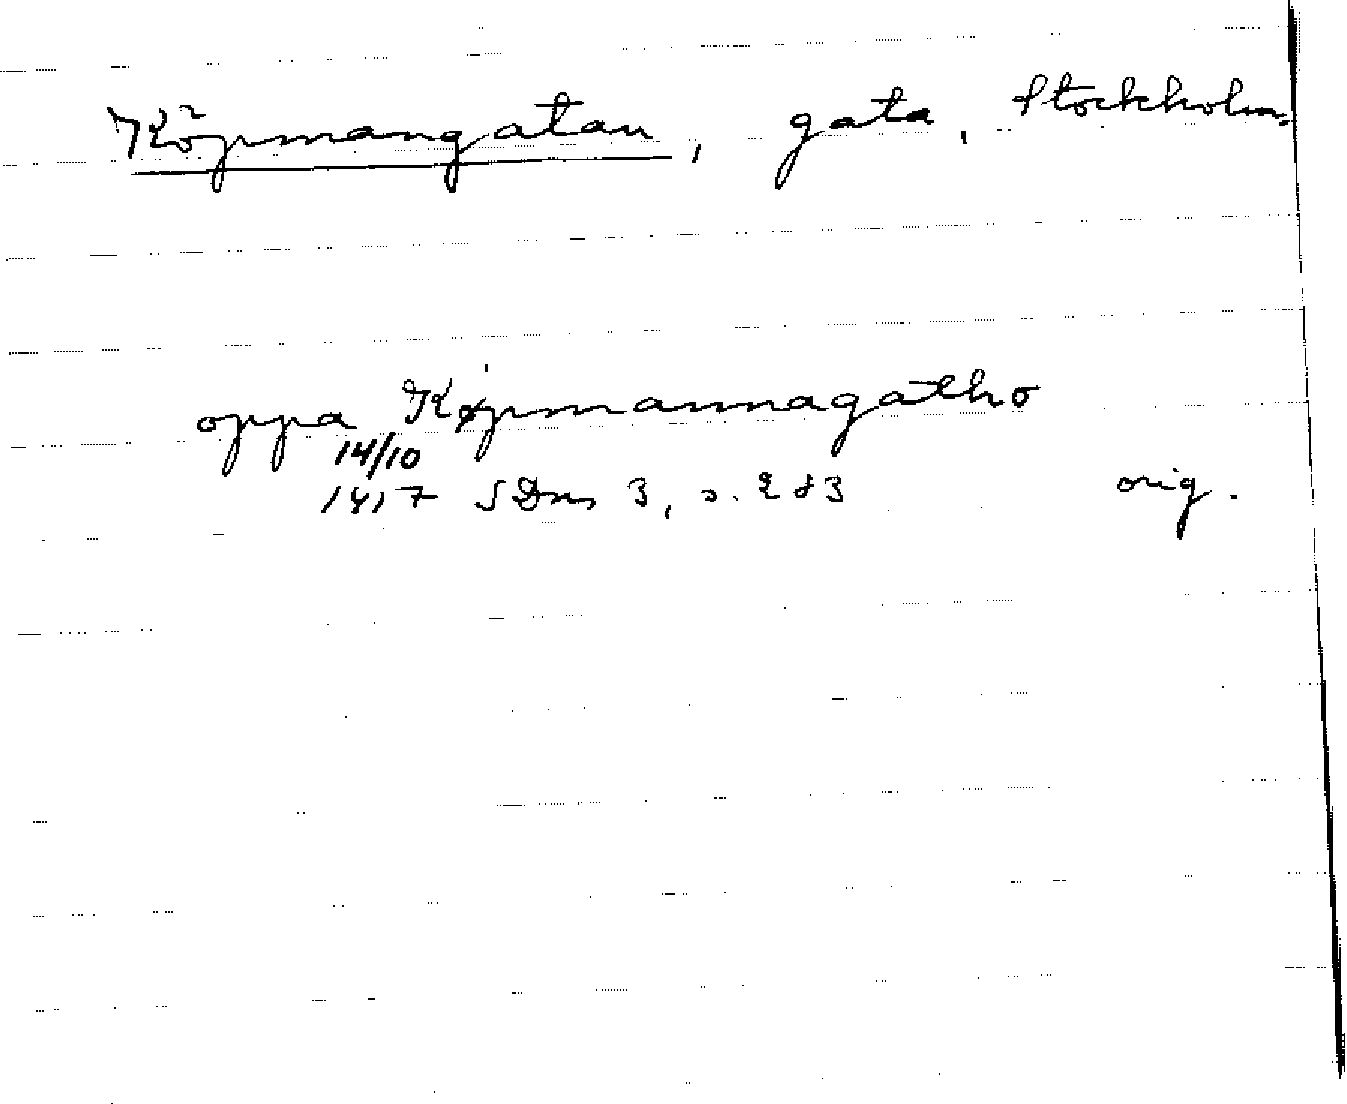 Köpmangatan, gata, Stockholm
oppa Køpmannagatho
14/10
1417 SDns 3, s. 283 orig.